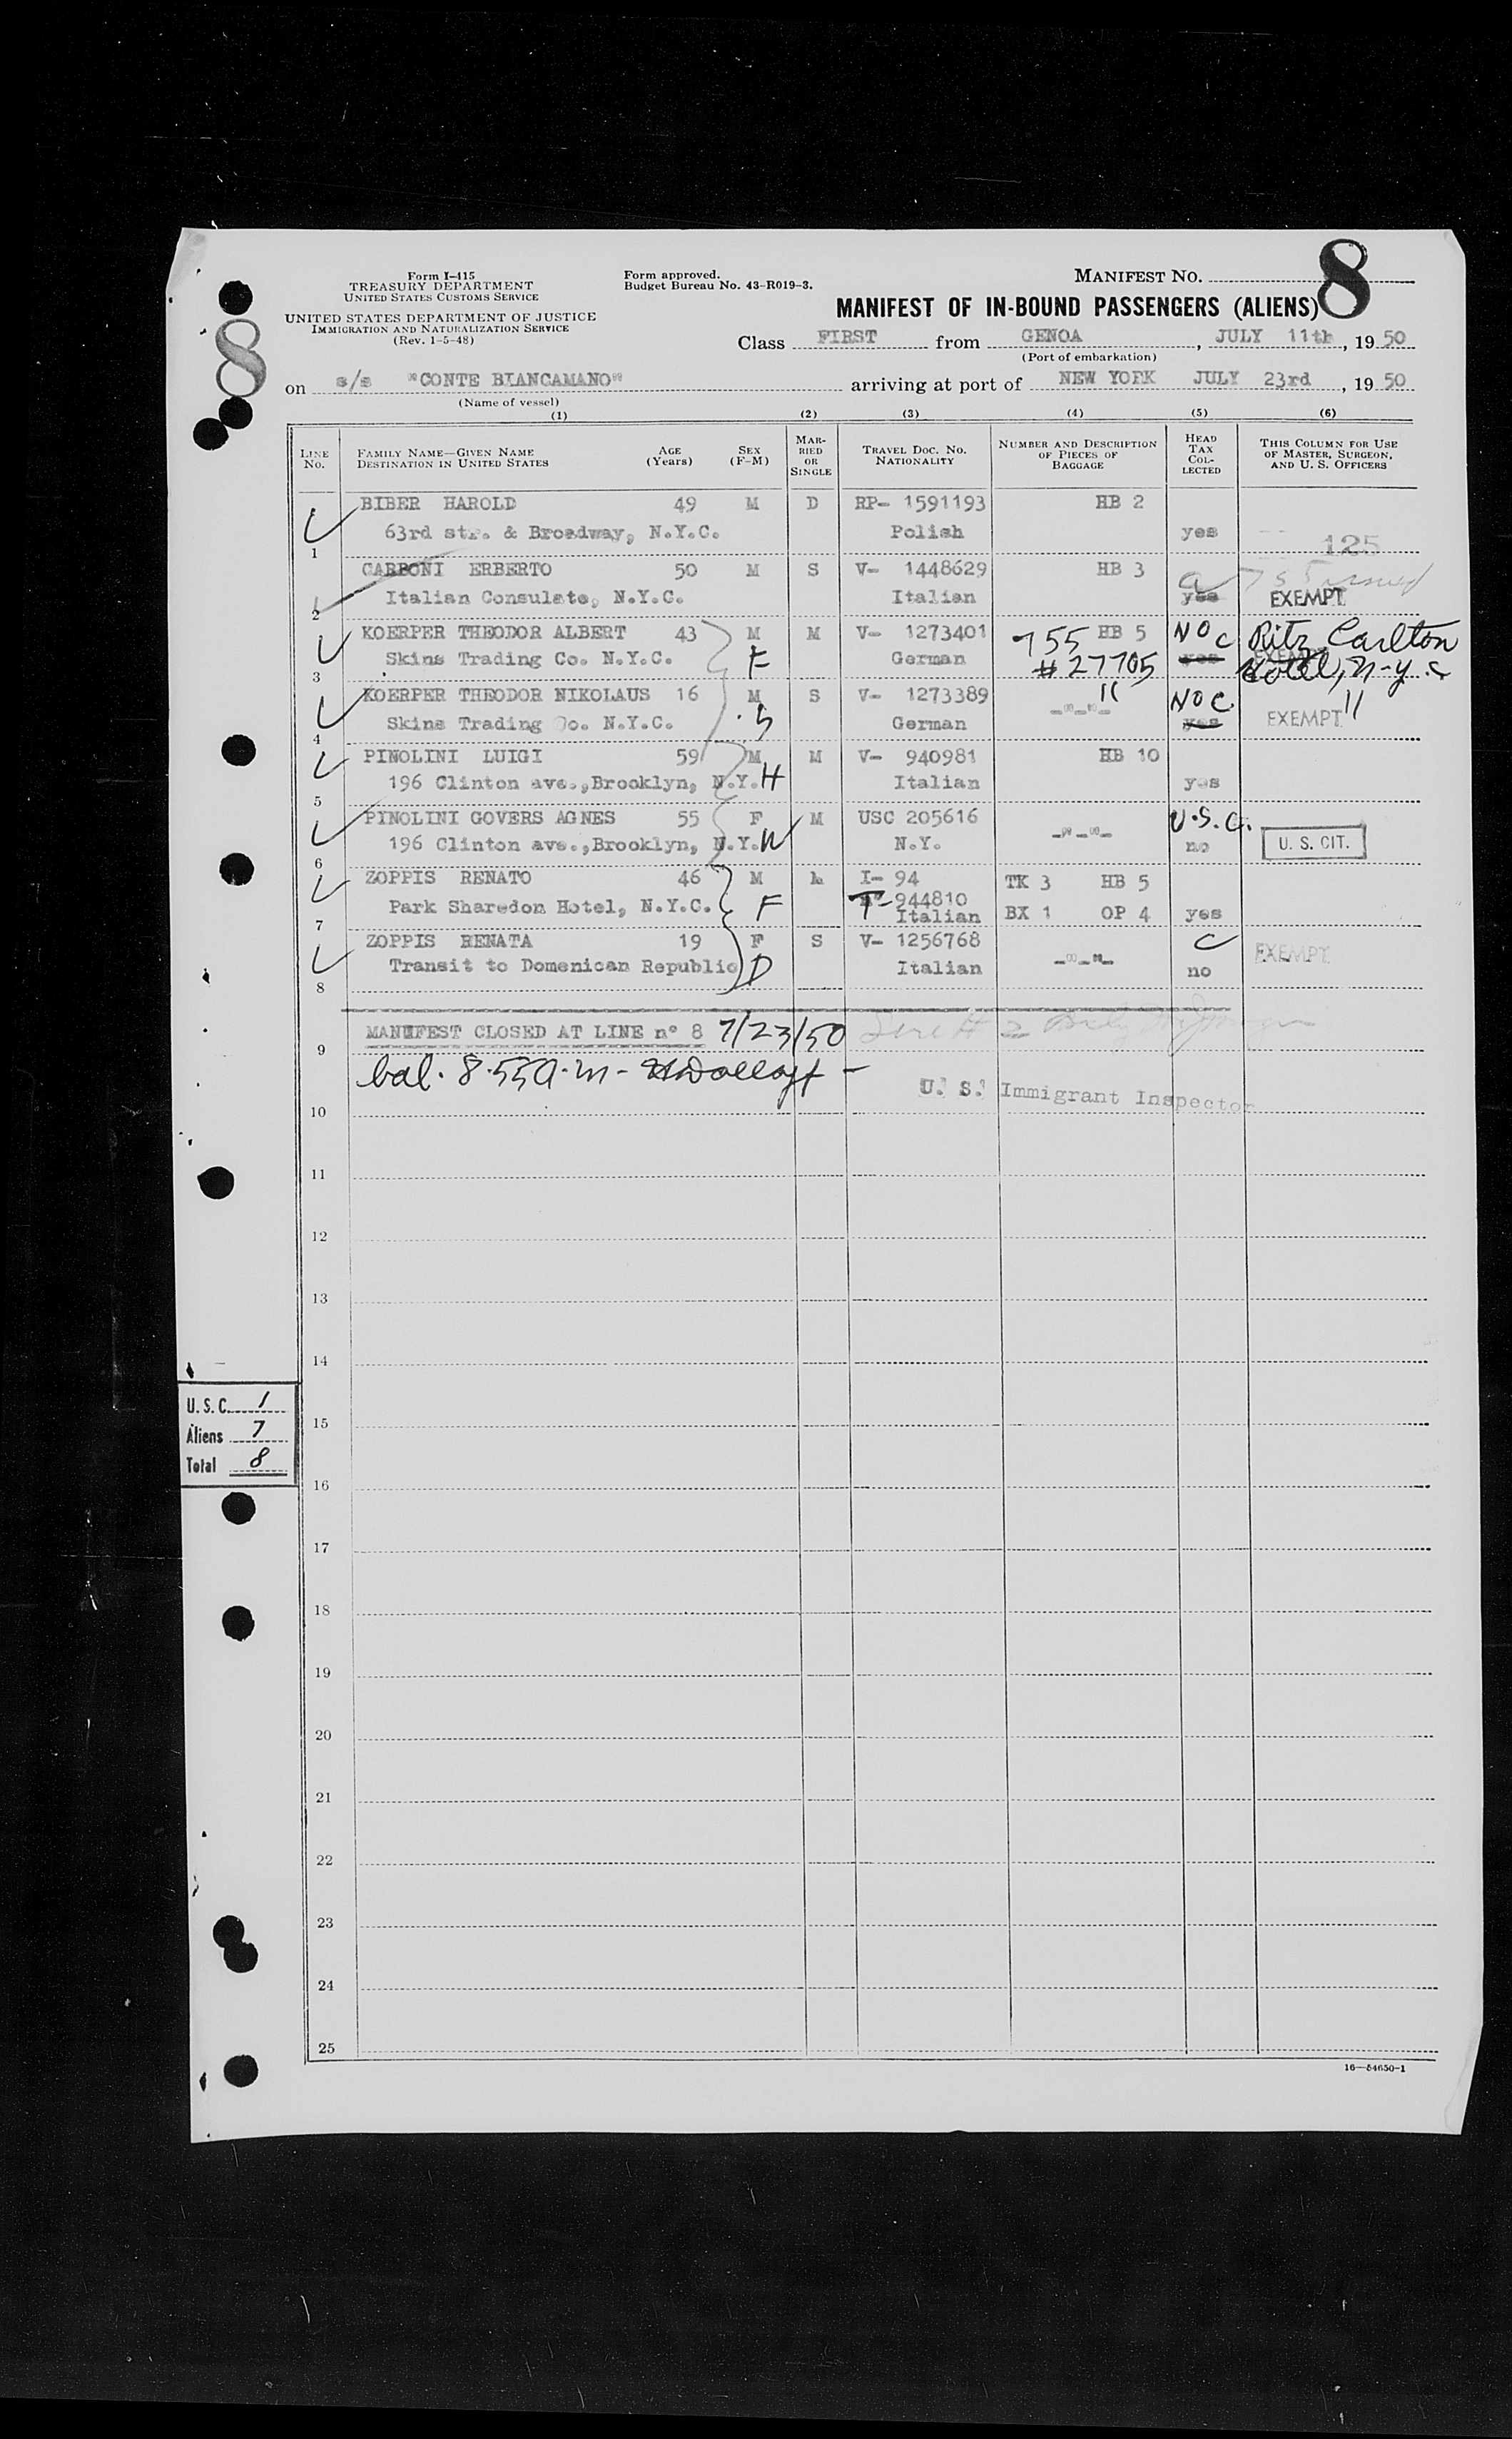 Form I-415
TREASURY DEPARTMENT
UNITED STATES CUSTOMS SERVICE
UNITED STATES DEPARTMENT OF JUSTICE
IMMIGRATION AND NATURALIZATION SERVICE
(Rev. 1-5-48)
Form approved.
Budget Bureau No. 43-R019-3.
MANIFEST NO. 8
8
MANIFEST OF IN-BOUND PASSENGERS (ALIENS)
Class FIRST from GENOA, JULY 11th, 19 50
(Port of embarkation)
on s/s "CONTE BIANCAMANO" arriving at port of NEW YORK JULY 23rd, 19 50
(Name of vessel)
(1) (2) (3) (4) (5) (6)
LINE NO. FAMILY NAME—GIVEN NAME DESTINATION IN UNITED STATES AGE (YEARS) SEX (F-M) MARRIED OR SINGLE TRAVEL DOC. NO. NATIONALITY NUMBER AND DESCRIPTION OF PIECES OF BAGGAGE HEAD TAX COLLECTED THIS COLUMN FOR USE OF MASTER, SURGEON, AND U. S. OFFICERS
BIBER HAROLD 49 M D RP- 1591193 HB 2
1 63rd str. & Broadway, N.Y.C. Polish yes 125
CARBONI ERBERTO 50 M S V- 1448629 HB 3
2 Italian Consulate, N.Y.C. Italian yes EXEMPT
KOERPER THEODOR ALBERT 43 M M V- 1273401 755 HB 5 NO C Ritz Carlton
3 Skins Trading Co. N.Y.C. F German # 27705 yes EXEMPT Hotel, N-y.c
KOERPER THEODOR NIKOLAUS 16 M S V- 1273389 -"-"- 11 NO C
4 Skins Trading Co. N.Y.C. S German yes EXEMPT 11
PINOLINI LUIGI 59 M M V- 940981 HB 10
5 196 Clinton ave., Brooklyn, N.Y. H Italian yes
PINOLINI GOVERS AGNES 55 F M USC 205616 -"-"- U.S.C.
6 196 Clinton ave., Brooklyn, N.Y. W N.Y. no U. S. CIT.
ZOPPIS RENATO 46 M I- 94 TK 3 HB 5
7 Park Sharedon Hotel, N.Y.C. F T-944810 Italian BX 1 OP 4 yes
ZOPPIS RENATA 19 F S V- 1256768 -"-"- C EXEMPT
8 Transit to Domenican Republic D Italian no
9 MANIFEST CLOSED AT LINE n° 8 7/23/50
bal. 8.55 A.m-
U. S. Immigrant Inspector
10
11
12
13
14
U. S. C. 1
15
Aliens 7
Total 8
16
17
18
19
20
21
22
23
24
25
16—54650-1